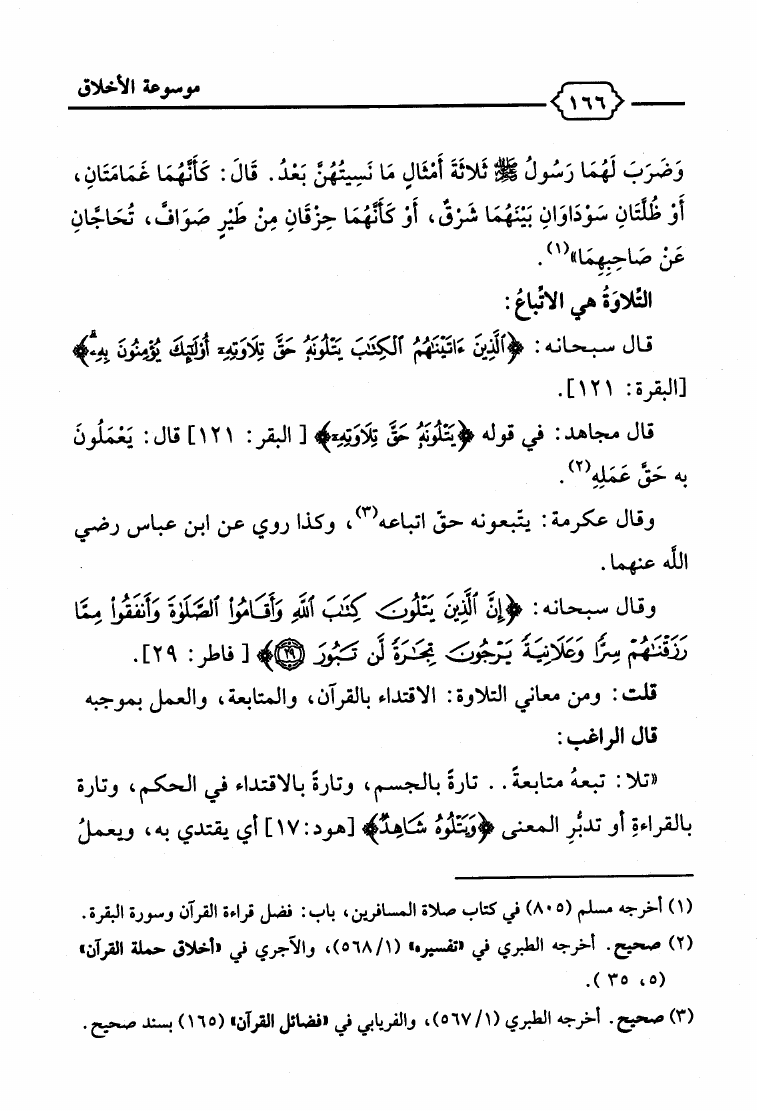 موسوعة الأخلاق
١٦٦
وَضَرَبَ لَهُمَا رَسُولُ ﷺ ثَلاثَةَ أَمْثَالٍ مَا نَسِيتُهُنَّ بَعْدُ. قَالَ: كَأَنَّهُمَا غَمَامَتَانِ،
أَوْ ظُلَّتَانِ سَوْدَاوَانِ بَيْنَهُمَا شَرْقٌ، أَوْ كَأَنَّهُمَا حِزْقَانِ مِنْ طَيْرٍ صَوَافَّ، تُحَاجَّانِ
عَنْ صَاحِبِهِمَا»(١).
التِّلاوَةُ هي الاتِّباعُ:
قال سبحانه: ﴿ٱلَّذِينَ ءَاتَيْنَٰهُمُ ٱلْكِتَٰبَ يَتْلُونَهُۥ حَقَّ تِلَاوَتِهِۦٓ أُوْلَٰٓئِكَ يُؤْمِنُونَ بِهِۦۗ﴾
[البقرة: ١٢١].
قال مجاهد: في قوله ﴿يَتْلُونَهُۥ حَقَّ تِلَاوَتِهِۦٓ﴾ [ البقر: ١٢١] قال: يَعْمَلُونَ
به حَقَّ عَمَلِهِ(٢).
وقال عكرمة: يتّبعونه حقّ اتباعه(٣)، وكذا روي عن ابن عباس رضي
اللَّه عنهما.
وقال سبحانه: ﴿إِنَّ ٱلَّذِينَ يَتْلُونَ كِتَٰبَ ٱللَّهِ وَأَقَامُواْ ٱلصَّلَوٰةَ وَأَنفَقُواْ مِمَّا
رَزَقْنَٰهُمْ سِرًّا وَعَلَانِيَةً يَرْجُونَ تِجَٰرَةً لَّن تَبُورَ ٢٩﴾ [ فاطر: ٢٩].
قلت: ومن معاني التلاوة: الاقتداء بالقرآن، والمتابعة، والعمل بموجبه
قال الراغب:
«تلا: تبعهُ متابعةً.. تارةً بالجسم، وتارةً بالاقتداء في الحكم، وتارة
بالقراءةِ أو تدبُّرِ المعنى ﴿وَيَتْلُوهُ شَاهِدٌ﴾ [هود:١٧] أي يقتدي به، ويعملُ
(١) أخرجه مسلم (٨٠٥) في كتاب صلاة المسافرين، باب: فضل قراءة القرآن وسورة البقرة.
(٢) صحيح. أخرجه الطبري في «تفسيره» (٥٦٨/١)، والآجري في «أخلاق حملة القرآن»
(٥، ٣٥ ).
(٣) صحيح. أخرجه الطبري (٥٦٧/١)، والفريابي في «فضائل القرآن» (١٦٥) بسند صحيح.